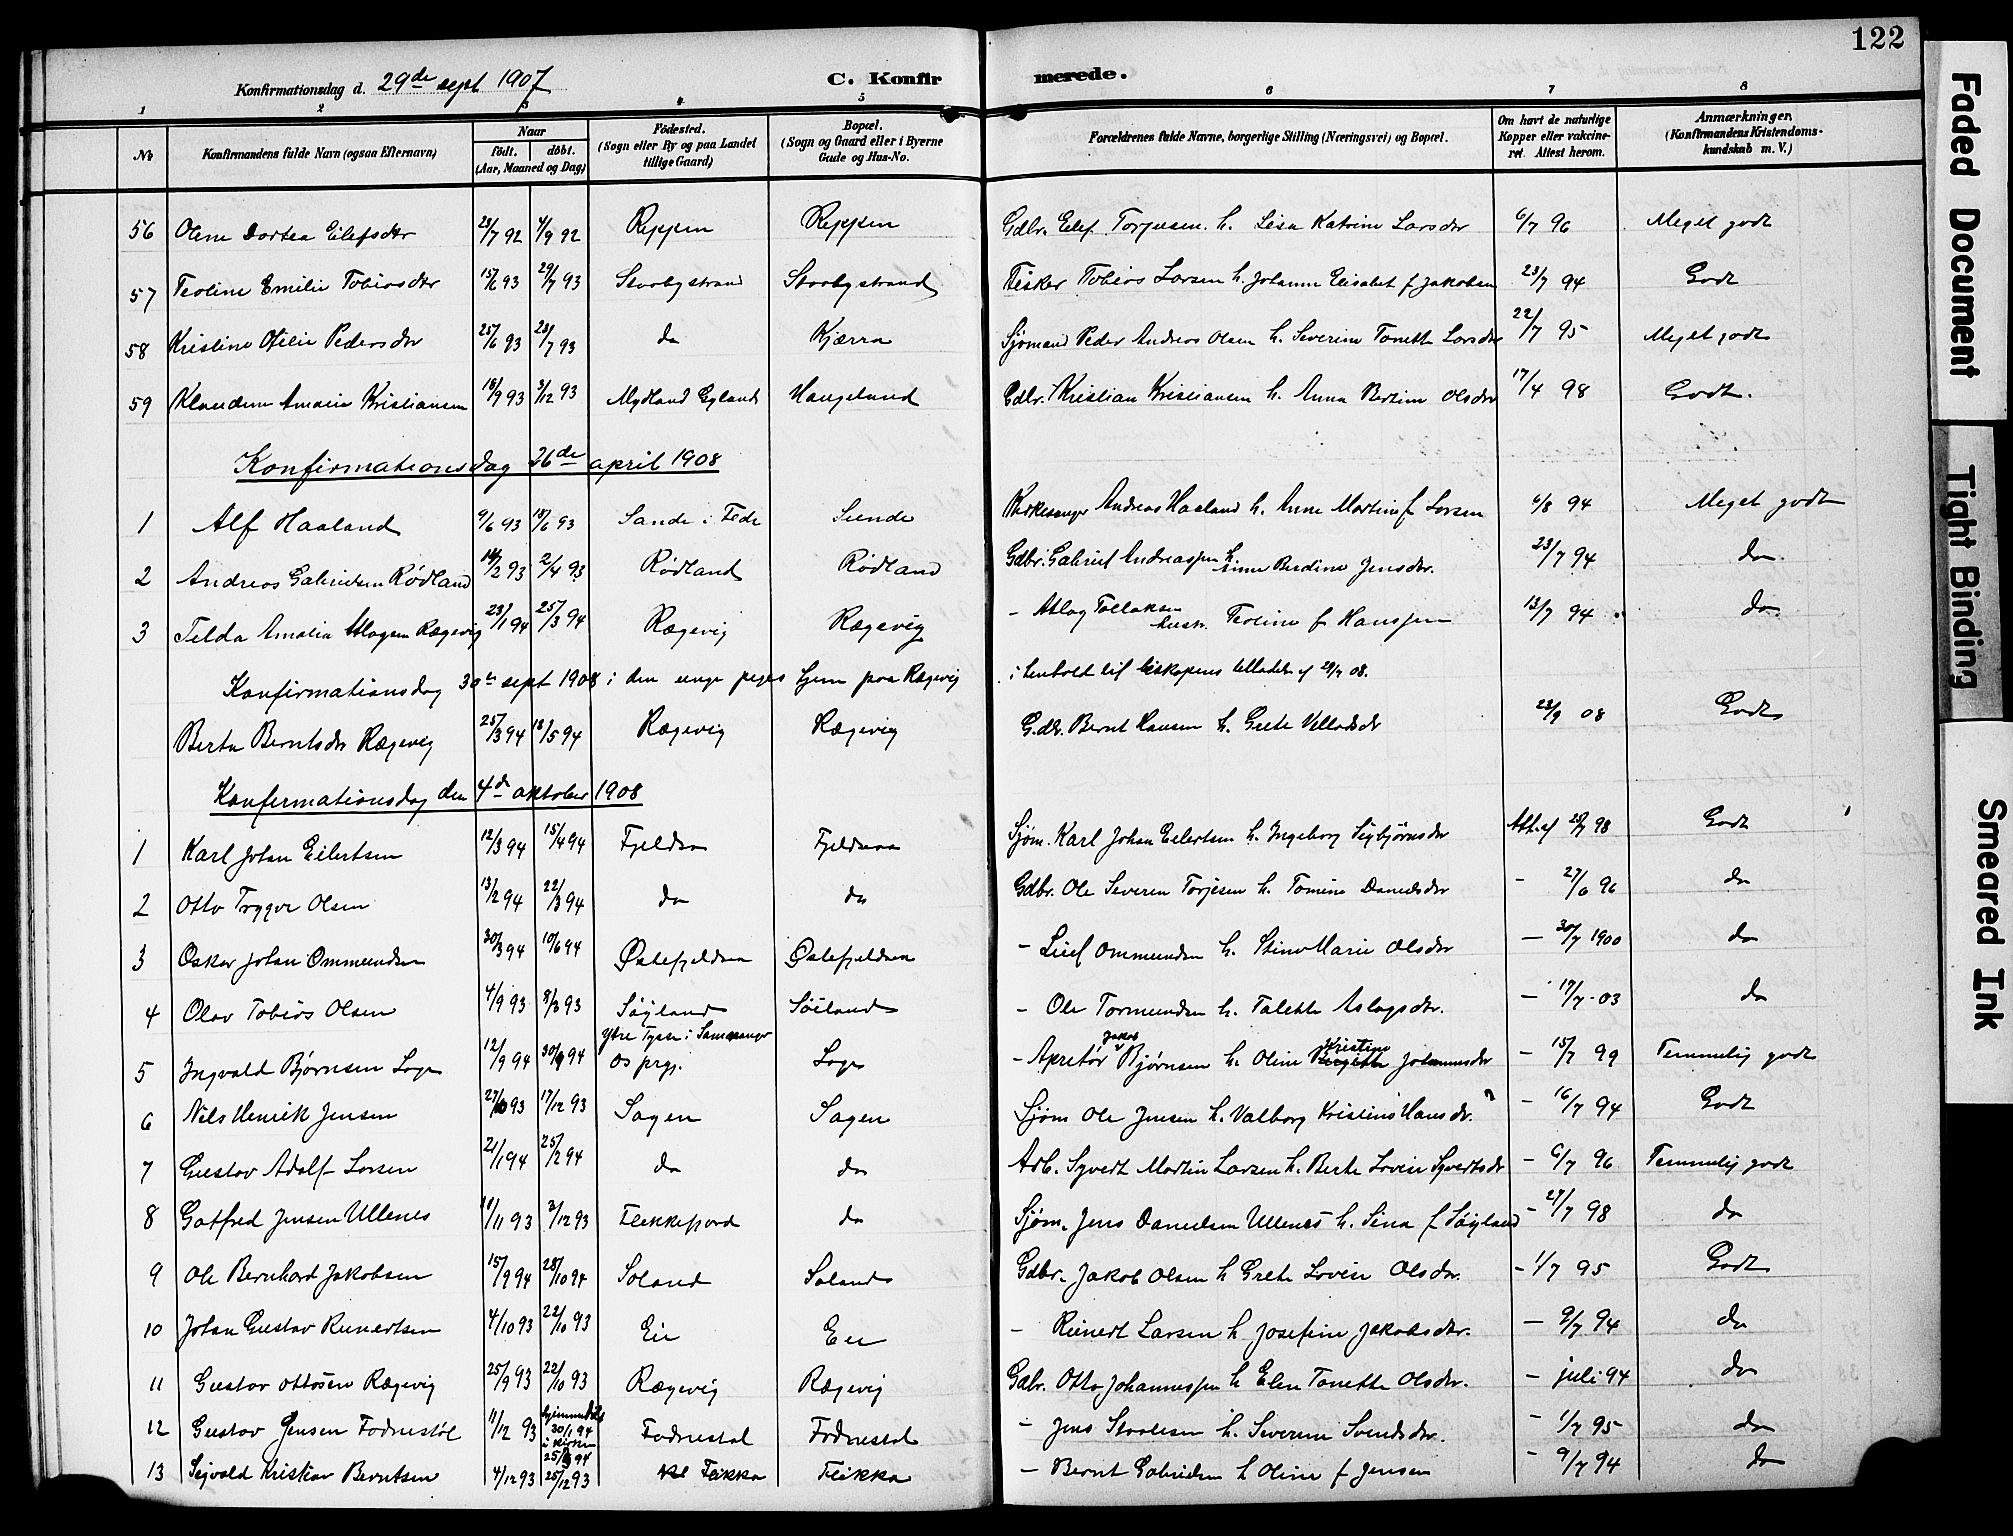 122
Konfirmationsdag d. 29de sept 1907 C. Konfirmerede.
1 2 3 4 5 6 7 8
No Konfirmandens fulde Navn (ogsaa Efternavn) Naar født. døbt. (Aar, Maaned og Dag) Fødested. (Sogn eller By og paa Landet tillige Gaard) Bopæl. (Sogn og Gaard eller i Byerne Gade og Hus-No. Forældrenes fulde Navne, borgerlige Stilling (Næringsvei) og Bopæl. Om havt de naturlige Kopper eller vakcineret. Attest herom. Anmærkninger. (Konfirmandens Kristendomskundskab m. V.)
56 Oline Dortea Eilefsdtr 23/7 92 4/9 92 Reppen Reppen Gdbr. Elef Torjusen h. Lisa Katrine Larsdtr 6/7 96 Meget godt
57 Teoline Emilie Tobiasdtr 15/6 93 29/7 93 Stroobystrand Fisker Tobias Larsen h. Johanne Elisabet f Jakobsen 23/7 94 Godt
58 Kristine Ofilie Pedersdtr 25/6 93 23/7 93 do Kjærra Sjømand Peder Andreas Olsen h. Severine Tonette Larsdtr 22/7 95 Meget godt
59 Klaudine Amalie Kristiansen 18/9 93 3/12 93 Mydland Gyland Haugelund Gdbr. Kristian Kristiansen h. Anna Bertine Olsdtr 17/4 98 Godt.
Konfirmationsdag 26de april 1908
1 Alf Haaland 9/6 93 18/6 93 Sande i Fede Sunde Kirkesanger Andreas Haaland h. Anne Martine f Larsen 6/8 94 Meget godt
2 Andreas Gabrielsen Rødland 14/2 93 2/4 93 Rødland Rødland Gdbr. Gabriel Andreassen h. Anne Berdine Jensdtr. 23/7 94 do
3 Telda Amalia Atlagsen Rægevig 23/1 94 25/3 94 Rægevig Rægevig - Atlag Tollaksen hustr. Teoline f Hanssen 13/7 94 do
Konfirmationsdag 30te sept 1908 i den unge piges hjem paa Rægevig i henhold til biskopens tilladelse af 29/9 08.
Berta Berntsdtr Rægevig 25/3 94 18/5 94 Rægevig Rægevig Gdbr. Bernt Hansen h. Grete Velladsdtr 23/9 08 Godt
Konfirmationsdag den 4de oktober 1908
1 Karl Johan Eilertsen 12/3 94 15/4 94 Fjeldsaa Fjeldsaa Sjøm. Karl Johan Eilertsen h. Ingeborg Sigbjørnsdtr Att. af 20/7 98 Godt
2 Otto Trygve Olsen 13/2 94 22/3 94 do do Gdbr. Ole Severin Torjesen h. Tomine Danielsdtr - 27/6 96 do
3 Oskar Johan Ommundsen 30/3 94 10/6 94 Østefjeldsaa Østefjeldsaa - Lief Ommundsen h. Stine Marie Olsdtr - 30/7 1900 do
4 Olav Tobias Olsen 4/9 93 8/10 93 Søyland Søiland - Ole Tormundsen h. Talette Aslagsdtr. - 17/7 03 do
5 Ingvald Bjørnsen Loge 12/9 94 30/9 94 Ytre Tysse i Samnanger Os prgj. Loge - Apretør Jakob Bjørnsen h. Oline Kristine Johannesdtr - 15/7 99 Temmelig godt
6 Nils Henrik Jensen 27/10 93 17/12 93 Sagen Sagen Sjøm Ole Jensen h. Valborg Kristine Hansdtr. - 16/7 94 Godt
7 Gustav Adolf Larsen 21/1 94 25/2 94 do do Arb. Syvert Martin Larsen h. Berte Lovise Syvertsdtr - 6/7 96 Temmelig godt
8 Gotfred Jensen Ullenes 10/11 93 3/12 93 Flekkefjord do Sjøm. Jens Danielsen Ullenes h. Sina f Søyland - 27/7 98 do
9 Ole Bernhard Jakobsen 15/9 94 28/10 94 Soland Solands Gdbr. Jakob Olsen h Grete Lovise Olsdtr. - 1/7 95 Godt
10 Johan Gustav Reinertsen 4/10 93 22/10 93 Eie Eie - Reinert Larsen h Josefine Jakobsdtr. - 9/7 94 do
11 Gustav Ottosen Rægevig 25/9 93 22/10 93 Rægevig Rægevig Gdbr. Otto Johannessen h Elen Tonette Olsdtr. - juli 94 do
12 Gustav Jensen Fodnestøl 11/12 93 hjemmedøbt 30/1 94 i kirken 25/3 94 Fodnestøl Fodnestøl - Jens Staalesen h. Severine Svendsdtr. - 1/7 95 do
13 Sigvald Kristian Berntsen 4/12 93 25/12 93 Flikka Flikka - Bernt Gabrielsen h Oline f Jensen - 9/7 94 do
Faded Document
Tight Binding
Smeared Ink